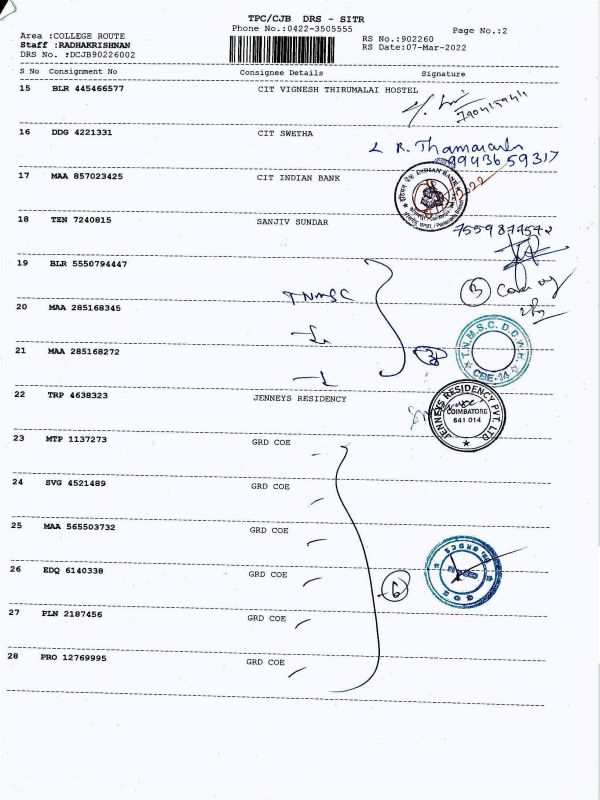 TPC/CJB DRS - SITR
Phone No.:0422-3505555
Page No.:2
Area :COLLEGE ROUTE
RS No.:902260
Staff :RADHAKRISHNAN
RS Date:07-Mar-2022
DRS No. :DCJB90226002
S No Consignment No Consignee Details Signature
15 BLR 445466577 CIT VIGNESH THIRUMALAI HOSTEL
16 DDG 4221331 CIT SWETHA
R. Thamarai
9943659317
17 MAA 857023425 CIT INDIAN BANK
INDIAN BANK
18 TEN 7240815 SANJIV SUNDAR
19 BLR 5550794447
TNMSC
3
20 MAA 285168345
T.N.M.S.C. D.C.W.H.
CBE-14
21 MAA 285168272
22 TRP 4638323 JENNEYS RESIDENCY
JENNEYS RESIDENCY PVT. LTD
COIMBATORE
641 014
23 MTP 1137273 GRD COE
24 SVG 4521489 GRD COE
25 MAA 565503732 GRD COE
26 EDQ 6140338 GRD COE
6
27 PLN 2187456 GRD COE
28 PRO 12769995 GRD COE